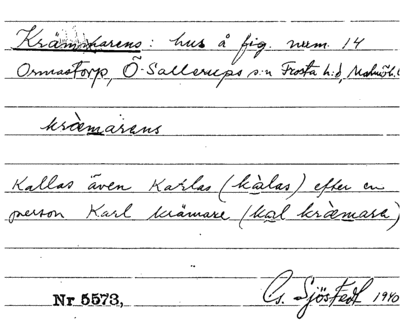 Krämmarens: hus å fig. num. 14
Ormastorp, Ö. Sallerups s:n Frosta h:d, Malmöh. l.
kræmarens
Kallas även Karlas (kàlas) efter en
person Karl krämare (kal kræmara)
Nr 5573, Cs. Sjöstedt 1940